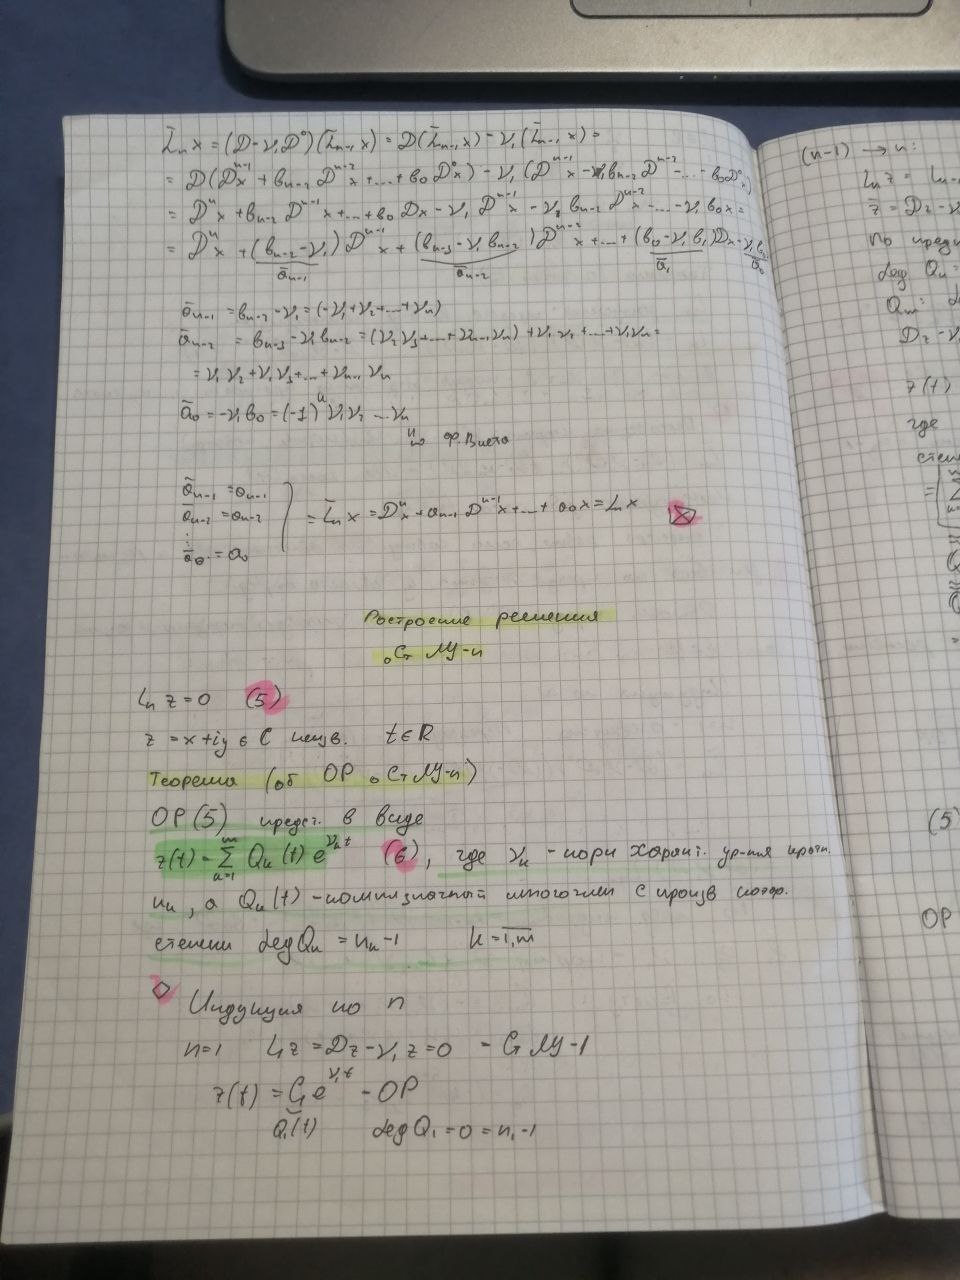 L̄ₙx = (D-ν₁D⁰)(L̄ₙ₋₁x) = D(L̄ₙ₋₁x) - ν₁(L̄ₙ₋₁x) =
= D(Dⁿ⁻¹x + bₙ₋₂Dⁿ⁻²x + ... + b₀D⁰x) - ν₁(Dⁿ⁻¹x - bₙ₋₂Dⁿ⁻² - ... - b₀D⁰x)
= Dⁿx + bₙ₋₂Dⁿ⁻¹x + ... + b₀Dx - ν₁Dⁿ⁻¹x - ν₁bₙ₋₂Dⁿ⁻²x - ... - ν₁b₀x =
= Dⁿx + (bₙ₋₂-ν₁)Dⁿ⁻¹x + (bₙ₋₃-ν₁bₙ₋₂)Dⁿ⁻²x + ... + (b₀-ν₁b₁)Dx - ν₁b₀
āₙ₋₁ āₙ₋₂ ā₁ ā₀
āₙ₋₁ = bₙ₋₂ - ν₁ = (-ν₁+ν₂+...+νₙ)
āₙ₋₂ = bₙ₋₃ - ν₁bₙ₋₂ = (ν₂ν₃+...+νₙ₋₁νₙ) + ν₁ν₂+...+ν₁νₙ =
= ν₁ν₂+ν₁ν₃+...+νₙ₋₁νₙ
ā₀ = -ν₁b₀ = (-1)ⁿν₁ν₂...νₙ
по ф. Виета
āₙ₋₁ = aₙ₋₁
āₙ₋₂ = aₙ₋₂ = L̄ₙx = Dⁿx + aₙ₋₁Dⁿ⁻¹x + ... + a₀x = Lₙx
⋮
ā₀ = a₀
Построение решения
оСтЛУ-n
Lₙz = 0 (5)
z = x+iy ∈ C неизв. t ∈ R
Теорема (об ОР оСтЛУ-n)
ОР(5) предст. в виде
z(t) = Σᵐₖ₌₁ Qₖ(t)e^{νₖt} (6), где νₖ - корн характ. ур-ния кратн.
nₖ, а Qₖ(t) - комплзначный многочлен с произв коэф.
степени deg Qₖ = nₖ-1 k = 1,m
◇ Индукция по n
n=1 L₁z = Dz - ν₁z = 0 - СтЛУ-1
z(t) = C₁e^{ν₁t} - ОР
Q₁(t) deg Q₁ = 0 = n₁-1
(n-1) → n:
Lₙz = Lₙ₋
z̄ = Dz - ν
По
deg Qₖ =
Qₘ:
Dz - ν
z(t)
где
степ
(5)
ОР